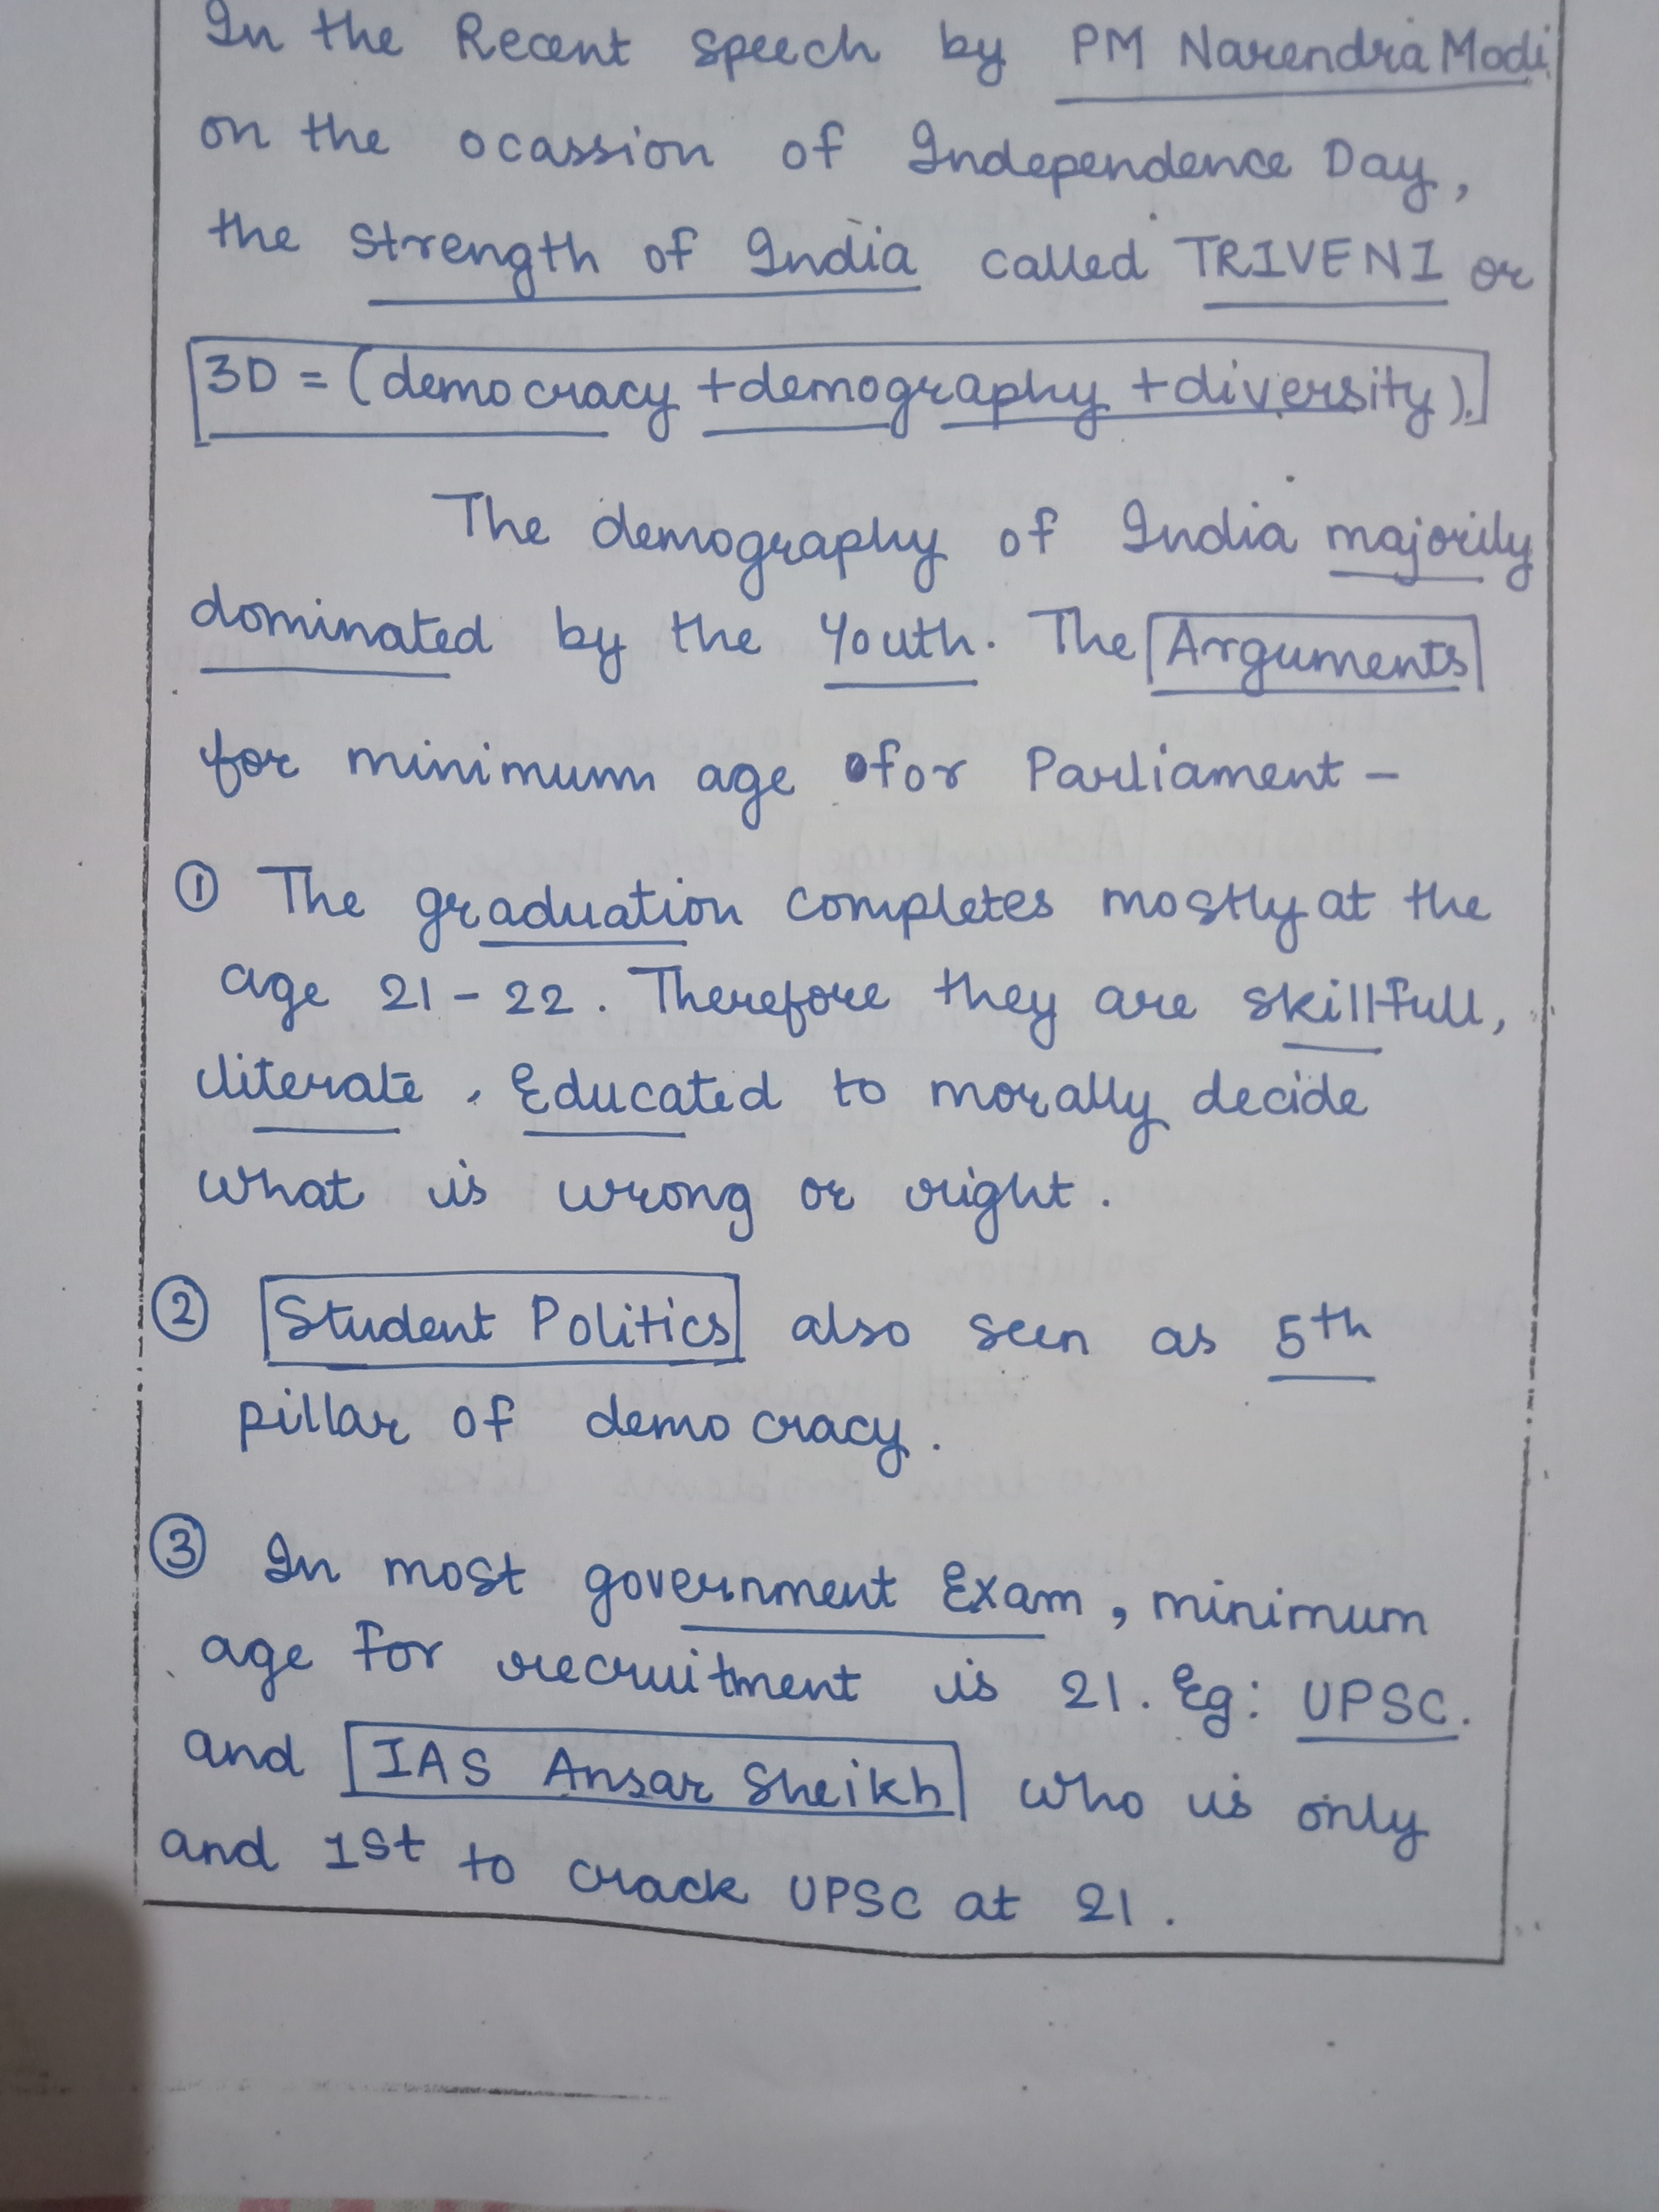 In the Recent speech by PM Narendra Modi
on the ocassion of Independence Day,
the strength of India called TRIVENI or
3D = (democracy + demography + diversity).
The demography of India majorily
dominated by the Youth. The Arguments
for minimum age for Parliament -
① The graduation completes mostly at the
age 21-22. Therefore they are skillfull,
literate, Educated to morally decide
what is wrong or right.
② Student Politics also seen as 5th
pillar of democracy.
③ In most government Exam, minimum
age for recruitment is 21. Eg: UPSC.
and IAS Ansar Sheikh who is only
and 1st to crack UPSC at 21.